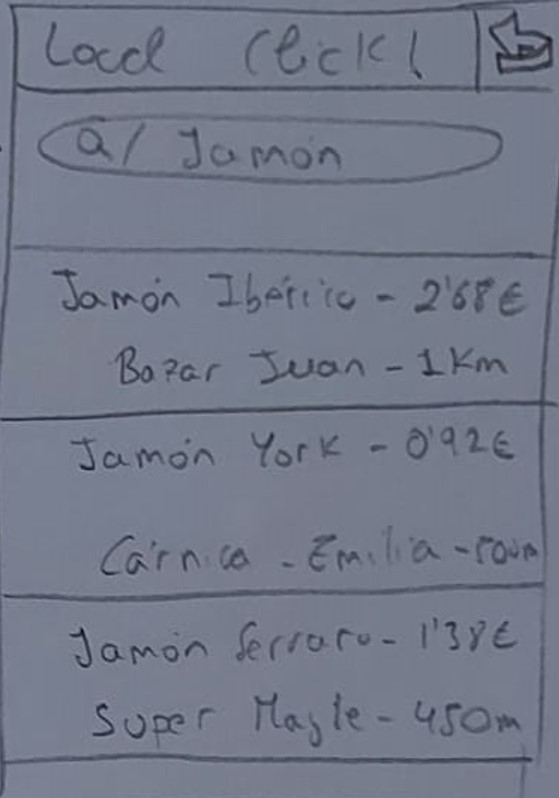 Local Click!
a/ Jamón
Jamón Ibérico - 2'68€
Bazar Juan - 1Km
Jamón York - 0'92€
Cárnica - Emilia - 500m
Jamón Serrano - 1'38€
Super - 450m